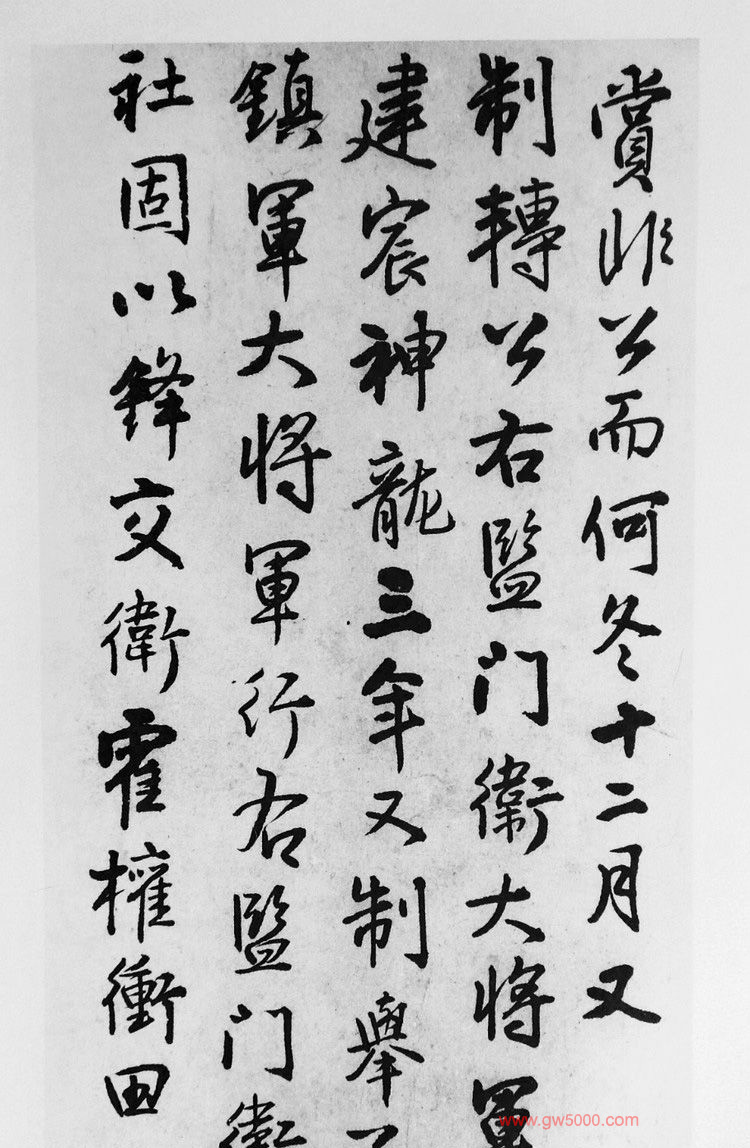 賞非公而何冬十二月又
制轉公右監门衛大将軍
建宸神龍三年又制舉公
鎮軍大将軍行右監门衛
社固以鋒交衛霍權衡田
www.gw5000.com